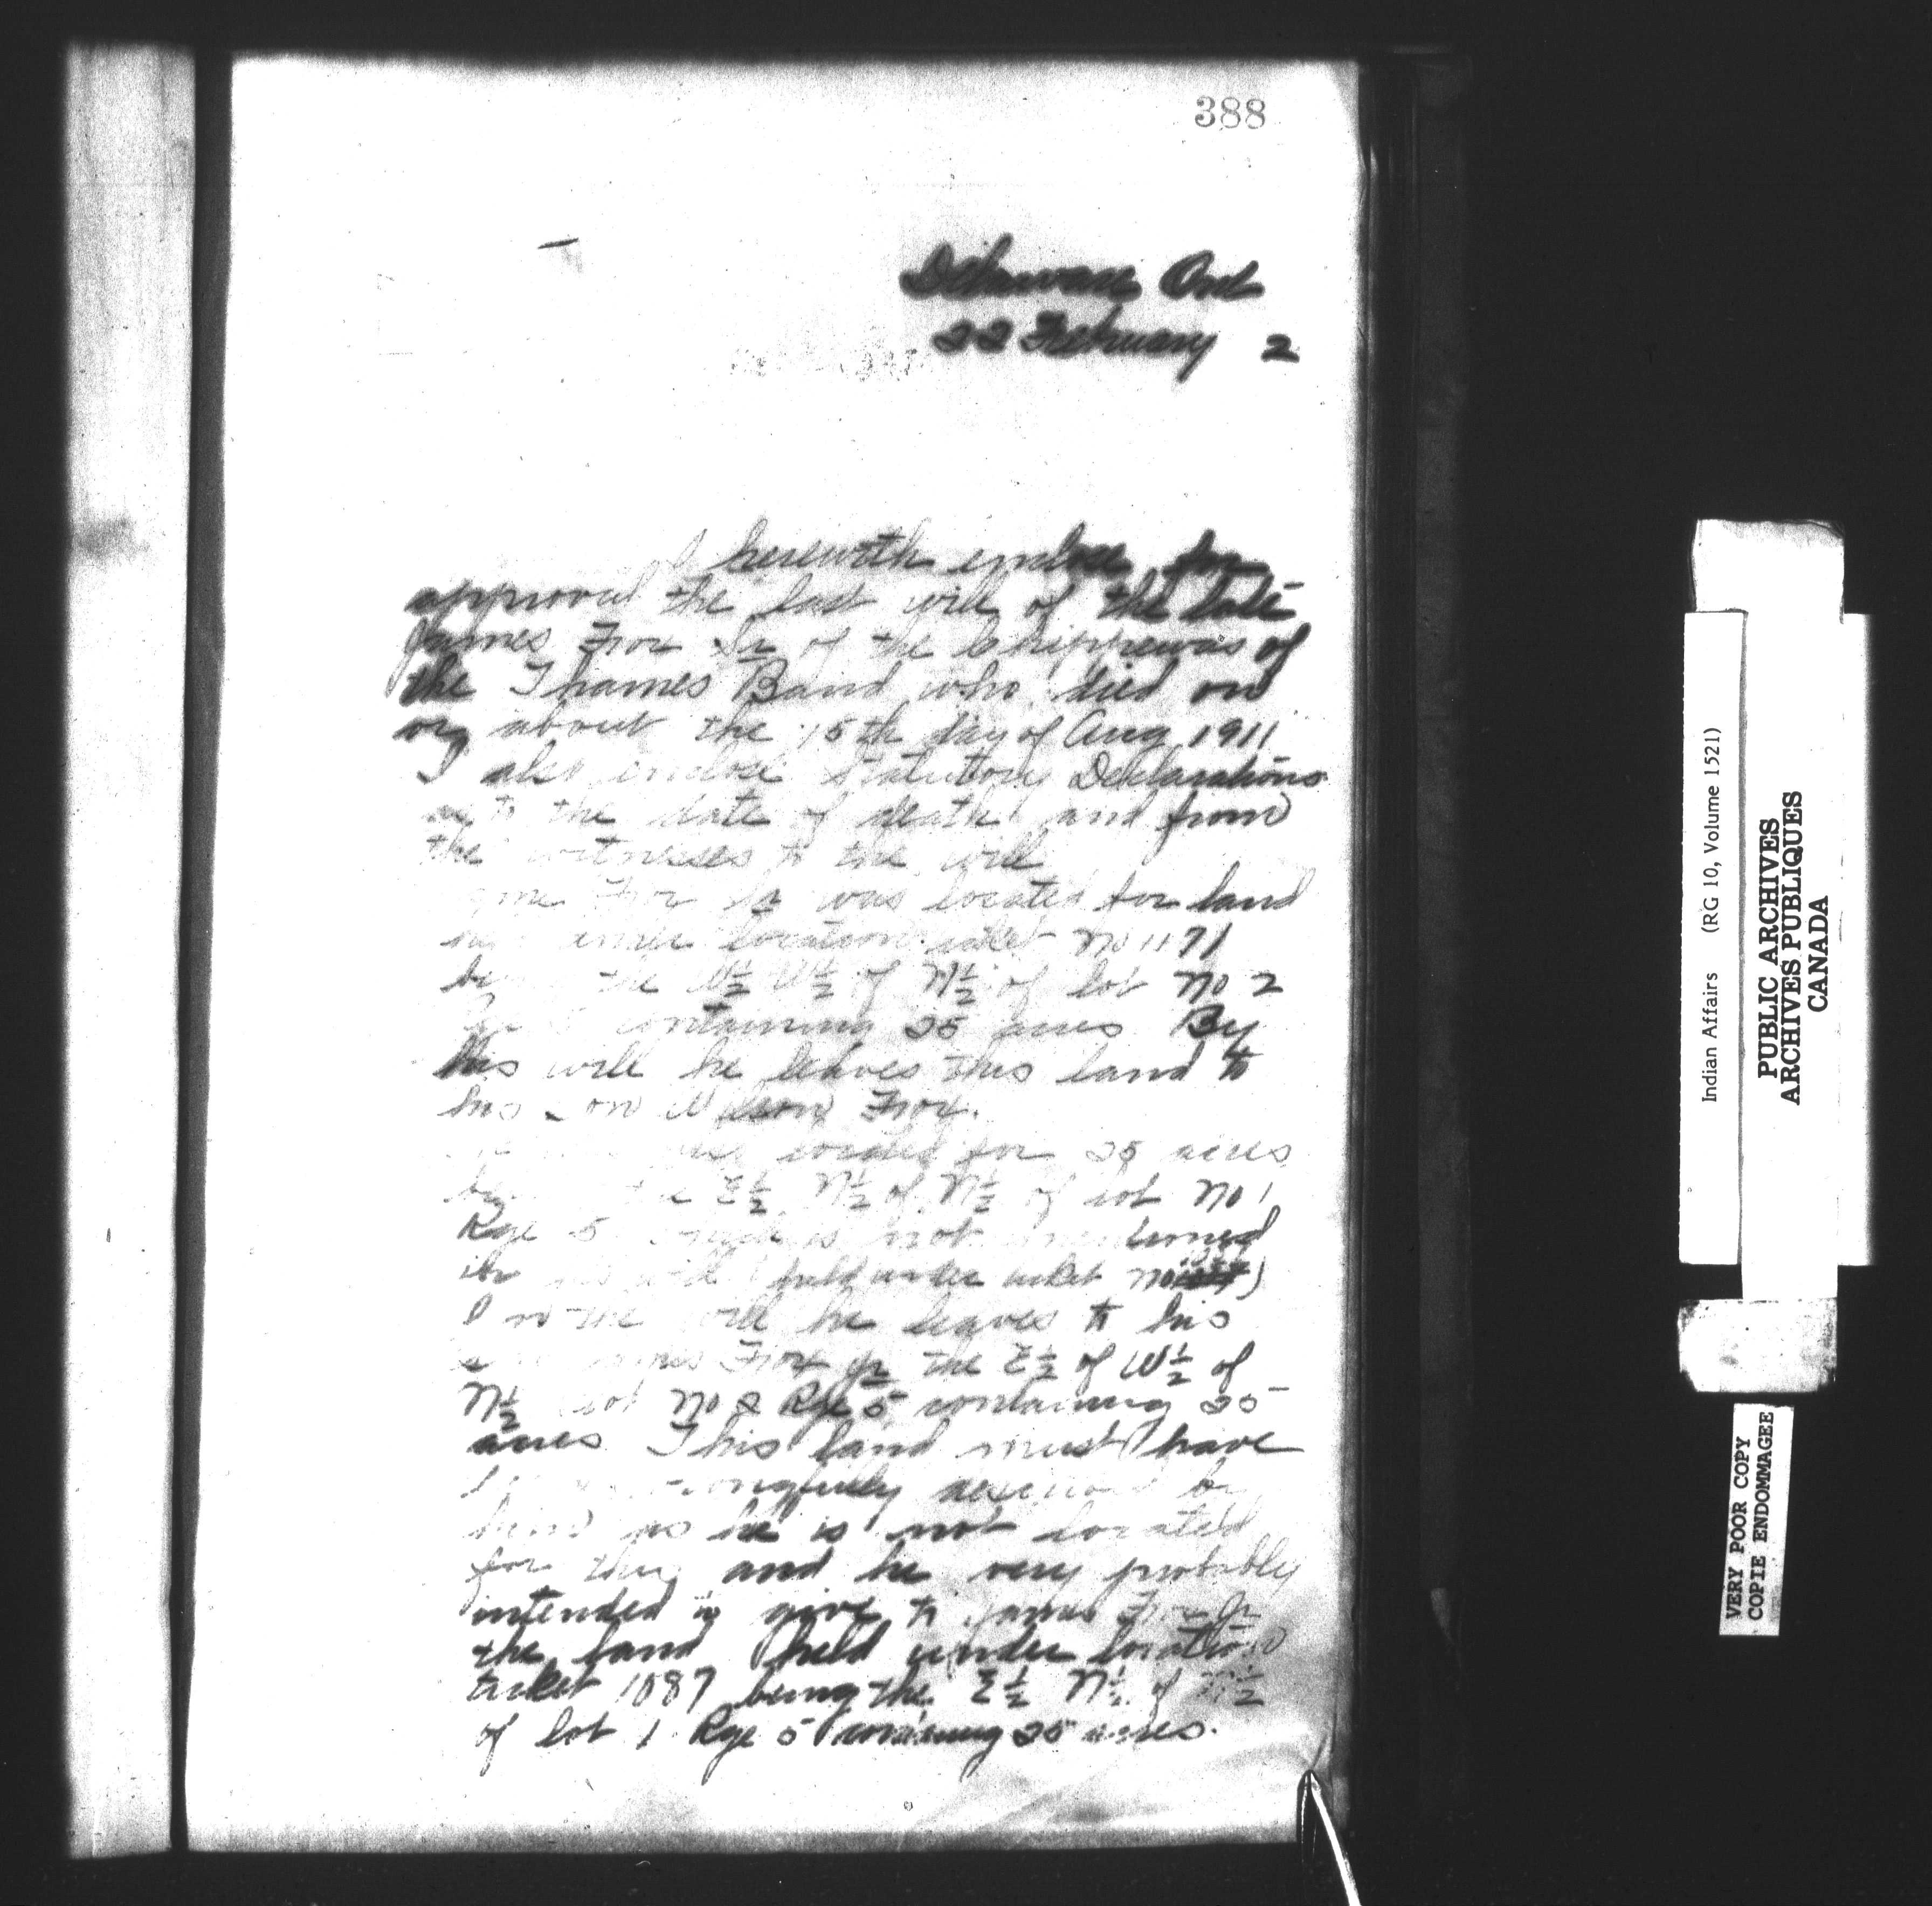 388
Delaware Ont
22 February 2
I herewith enclose for
approval the last will of the late
James Fox Sr of the Chippewas of
the Thames Band who died on
or about the 15th day of Aug 1911
I also enclose Statuttory Declarations
as to the date of death and from
the witnesses to the will
Fox Sr was located for land
under location ticket No 1171
the W½ W½ of N½ of lot No 2
5 containing 25 acres By
this will he leaves this land to
his son Fox.
located for 25 acres
the E½ N½ of N½ of lot No 1
Rge 5 is not
will (held under ticket No
In the will he leaves to his
Fox Jr the E½ of W½ of
N½ lot No 2 Rge 5 containing 25
acres This land must have
him as he is not located
for this and he very probably
intended to give to James Fox Jr
the land held under location
ticket 1087 being the E½ N½ of N½
of lot 1 Rge 5 containing 25 acres.
Indian Affairs (RG 10, Volume 1521)
PUBLIC ARCHIVES
ARCHIVES PUBLIQUES
CANADA
VERY POOR COPY
COPIE ENDOMMAGEE